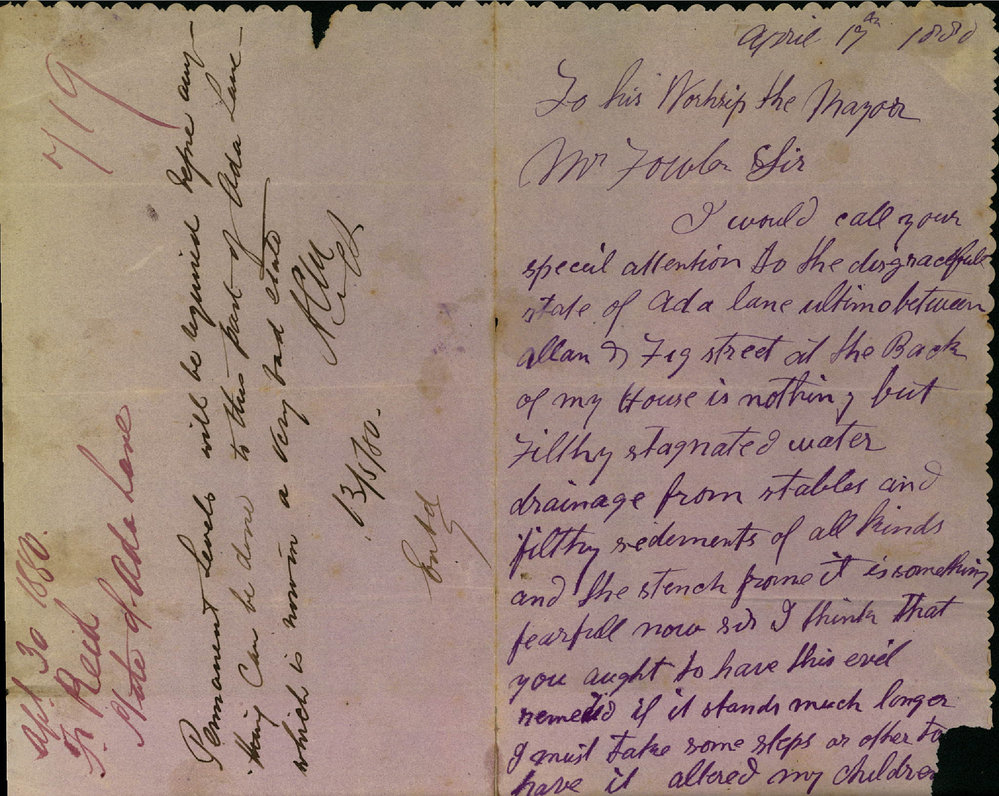 April 17th 1880
To his Worhsip the Mayor
Mr Fowler Sir
I would call your
speciil attention to the disgracefull
state of Ada lane ultimo between
allan & Fig street at the Back
of my House is nothing but
Filthy stagnated water
drainage from stables and
filthy sediments of all kinds
and the stench frome it is something
fearfull now sir I think that
you aught to have this evil
remedid if it stands much longer
I must take some steps or other to
have it altered my children
719
Apl 30 1880.
Fr Reid
State of Ada Lane
Permanent Levels will be required before any-
thing Can be done to this part of Ada Lane-
which is now in a very bad state
13/5/80.
Entd